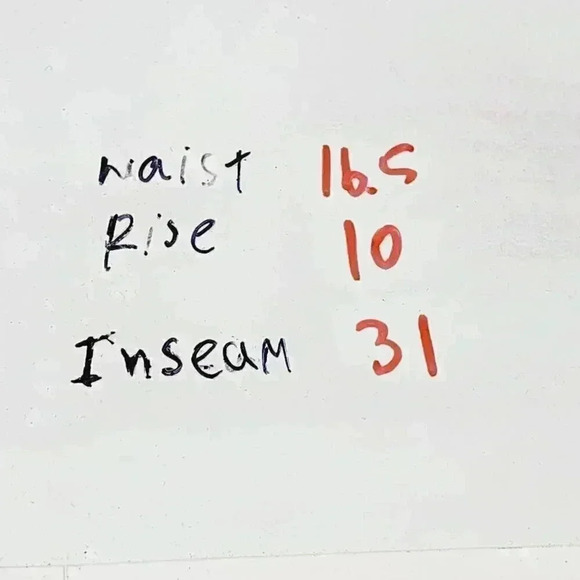 waist 16.5
Rise 10
Inseam 31